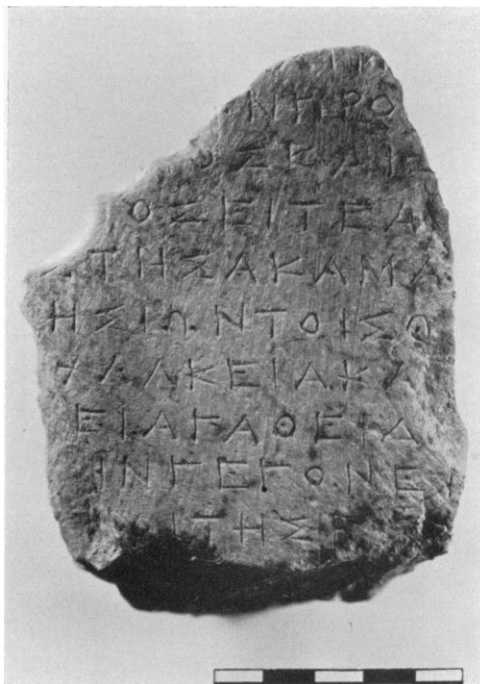 ΝΗΡΟ
ΟΣΚΑΙ
ΟΣΕΙΤΕΑ
ΤΗΣΑΚΑΜΑ
ΗΣΙΩΝΤΟΙΣΩ
ΑΛΚΕΙΑΚΑ
ΕΙΑΓΑΘΕΙΔ
ΙΝΓΕΓΟΝΕ
ΙΤΗΣ